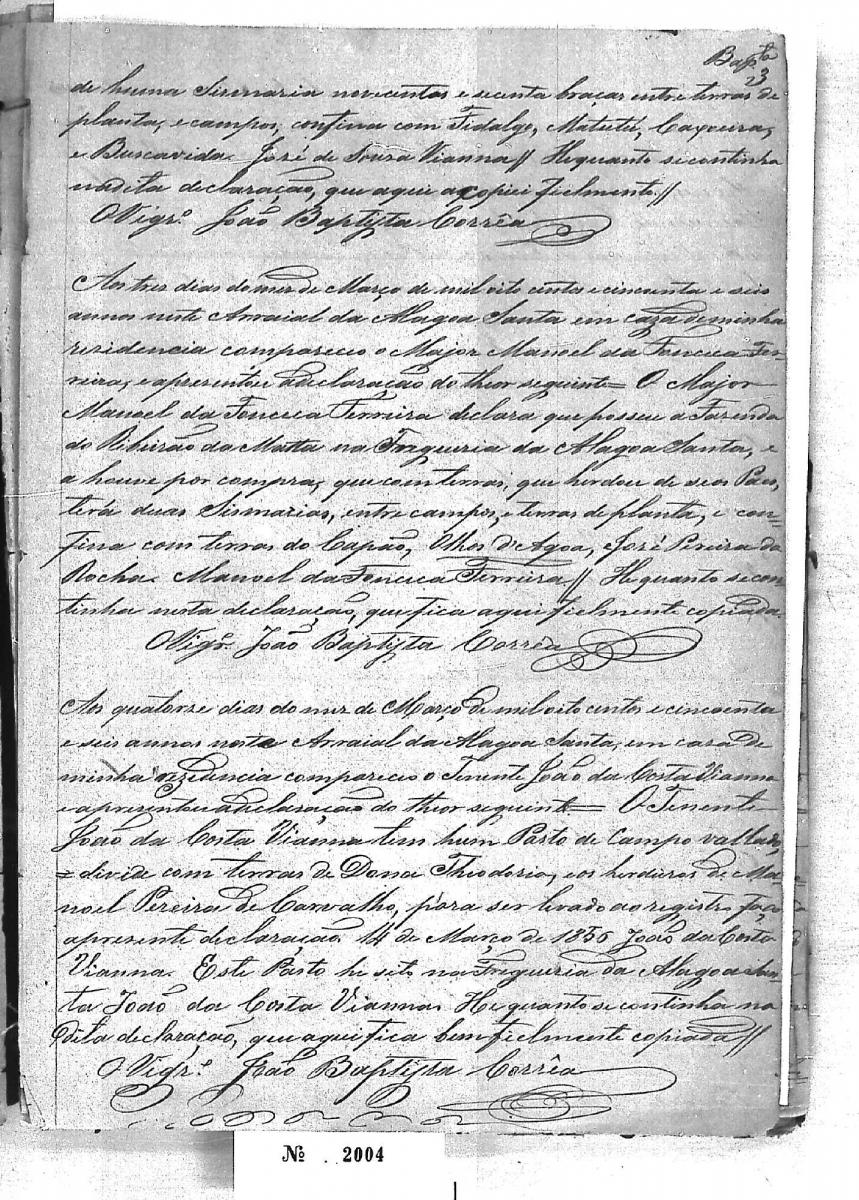 Bapta
23
de huma Sismaria novecentas e secenta braças entre terras de
planta, e campos, confina com Fidalgo, Matutú, Caxoeira,
e Buscavida. José de Souza Vianna // He quanto se continha
na dita declaração, que aqui a copiei fielmente. //
O Vigrº. João Baptista Corrêa
Aos tres dias do mez de Março de mil oito centos e cincoenta e seis
annos neste Arraial da Alagoa Santa em caza de minha
rezidencia compareceo o Major Manoel da Fonceca Fer-
reira, e apresentou a declaração do theor seguinte = O Major
Manoel da Fonceca Ferreira declara que possue a Fazenda
do Ribeirão da Matta na Freguezia da Alagoa Santa, e
a houve por compra, que com terras, que herdou de seos Paes,
terá duas Sismarias, entre campos, e terras de planta, e con-
fina com terras do Capão, Olhos d'Agoa, José Pereira da
Rocha. Manoel da Fonceca Ferreira // He quanto se con-
tinha nesta declaração, que fica aqui fielmente copiada.
O Vigrº. João Baptista Corrêa
Aos quatorze dias do mez de Março de mil oito centos e cincoenta
e seis annos neste Arraial da Alagoa Santa, em caza de
minha rezidencia compareceo o Tenente João da Costa Vianna
e apresentou a declaração do theor seguinte = O Tenente
João da Costa Vianna tem hum Pasto de Campo vallado,
= divide com terras de Dona Theodoria, e os herdeiros de Ma-
noel Pereira de Carvalho, para ser levado ao registro faço
a presente declaração. 14 de Março de 1856 João da Costa
Vianna. Este Pasto he sito na Freguezia da Alagoa San-
ta João da Costa Vianna. He quanto se continha na
dita declaração, que aqui fica bem fielmente copiada //
O Vigrº. João Baptista Corrêa
Nº 2004